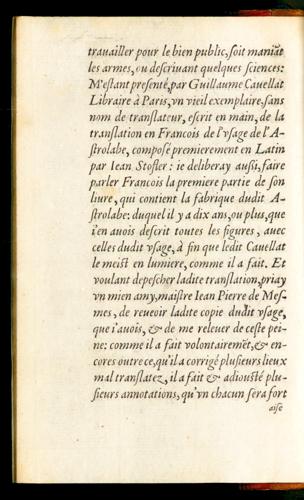 travailler pour le bien public, soit maniãt
les armes, ou descrivant quelques sciences:
M'estant presenté, par Guillaume Cavellat
Libraire à Paris, vn vieil exemplaire, sans
nom de translateur, escrit en main, de la
translation en Francois de l'vsage de l'A-
strolabe, composé premierement en Latin
par Iean Stofler: ie deliberay aussi, faire
parler Francois la premiere partie de son
liure, qui contient la fabrique dudit A-
strolabe: duquel il y a dix ans, ou plus, que
i'en avois descrit toutes les figures, avec
celles dudit vsage, à fin que ledit Cavellat
le meist en lumiere, comme il a fait. Et
voulant depescher ladite translation, priay
vn mien amy, maistre Iean Pierre de Mes-
mes, de reveoir ladite copie dudit vsage,
que i'avois, & de me relever de ceste pei-
ne: comme il a fait volontairemẽt, & en-
cores outre ce, qu'il a corrigé plusieurs lieux
mal translatez, il a fait & adiousté plu-
sieurs annotations, qu'vn chacun sera fort
aise